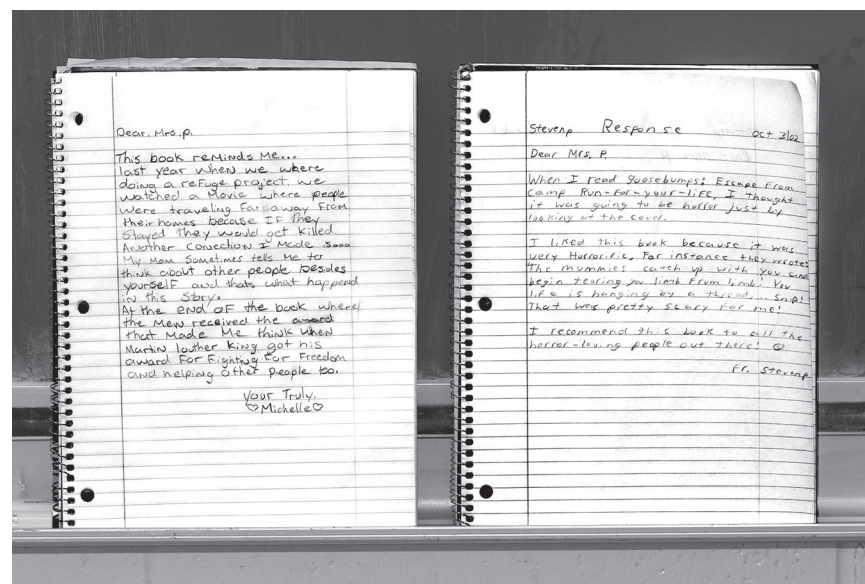 Dear. Mrs. p.
This book reMinds Me...
last year when we where
doing a reFuge project, we
watched a Movie where people
were traveling Far away From
their homes becase IF they
Stayed They would get killed.
Another Conection I Made is
My Mom Sometimes tells Me to
think about other people besides
yourself and thats what happend
in this Story.
At the end OF the book where
the Men received the award
that Made Me think when
Martin louther King got his
award For Fighting For Freedom
and helping other people too.
your Truly.
♡Michelle♡
Stevenp Response oct 3/02
Dear Mrs. P.
When I read goosebumps: Escape From
Camp Run-For-your-life, I thought
it was going to be horror just by
looking at the cover.
I liked this book because it was
very Horrorific, For instance they wrote:
The mummies catch up with you and
begin tearing you limb From limb! You
life is hanging by a thread... Snip!
That was pretty scary For me!
I recommend this book to all the
horror-loving people out there! ☺
Fr. Stevenp